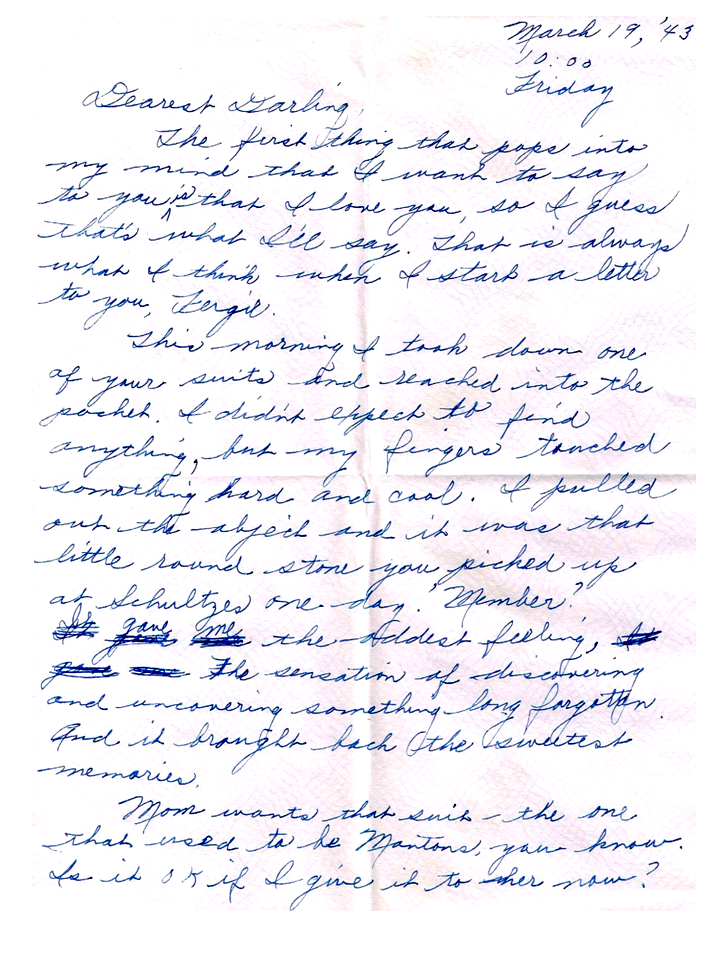 March 19, '43
10:00
Friday
Dearest Darling,
The first thing that pops into
my mind that I want to say
to you is that I love you, so I guess
that's what I'll say. That is always
what I think when I start a letter
to you, Fergie.
This morning I took down one
of your suits and reached into the
pocket. I didn't expect to find
anything, but my fingers touched
something hard and cool. I pulled
out the object and it was that
little round stone you picked up
at Schultzes one day. 'Member?
It gave me the oddest feeling, It
gave me The sensation of discovering
and uncovering something long forgotten.
And it brought back the sweetest
memories.
Mom wants that suit – the one
that used to be Mantons, you know.
Is it OK if I give it to her now?